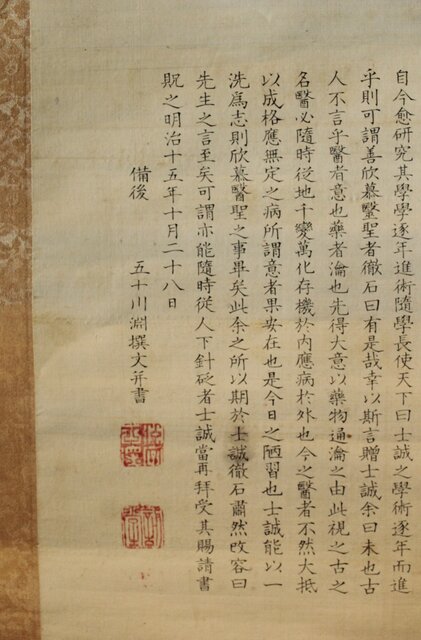 自今愈研究其學學逐年進術隨學長使天下曰士誠之學術逐年而進
乎則可謂善欣慕毉聖者徹石曰有是哉幸以斯言贈士誠余曰未也古
人不言乎醫者意也藥者瀹也先得大意以藥物通瀹之由此視之古之
名醫必隨時從地千變萬化存機於內應病於外也今之醫者不然大抵
以成格應無定之病所謂意者果安在也是今日之陋習也士誠能以一
洗爲志則欣慕醫聖之事畢矣此余之所以期於士誠徹石肅然改容曰
先生之言至矣可謂亦能隨時從人下針砭者士誠當再拜受其賜請書
貺之明治十五年十月二十八日
備後 五十川淵撰文并書